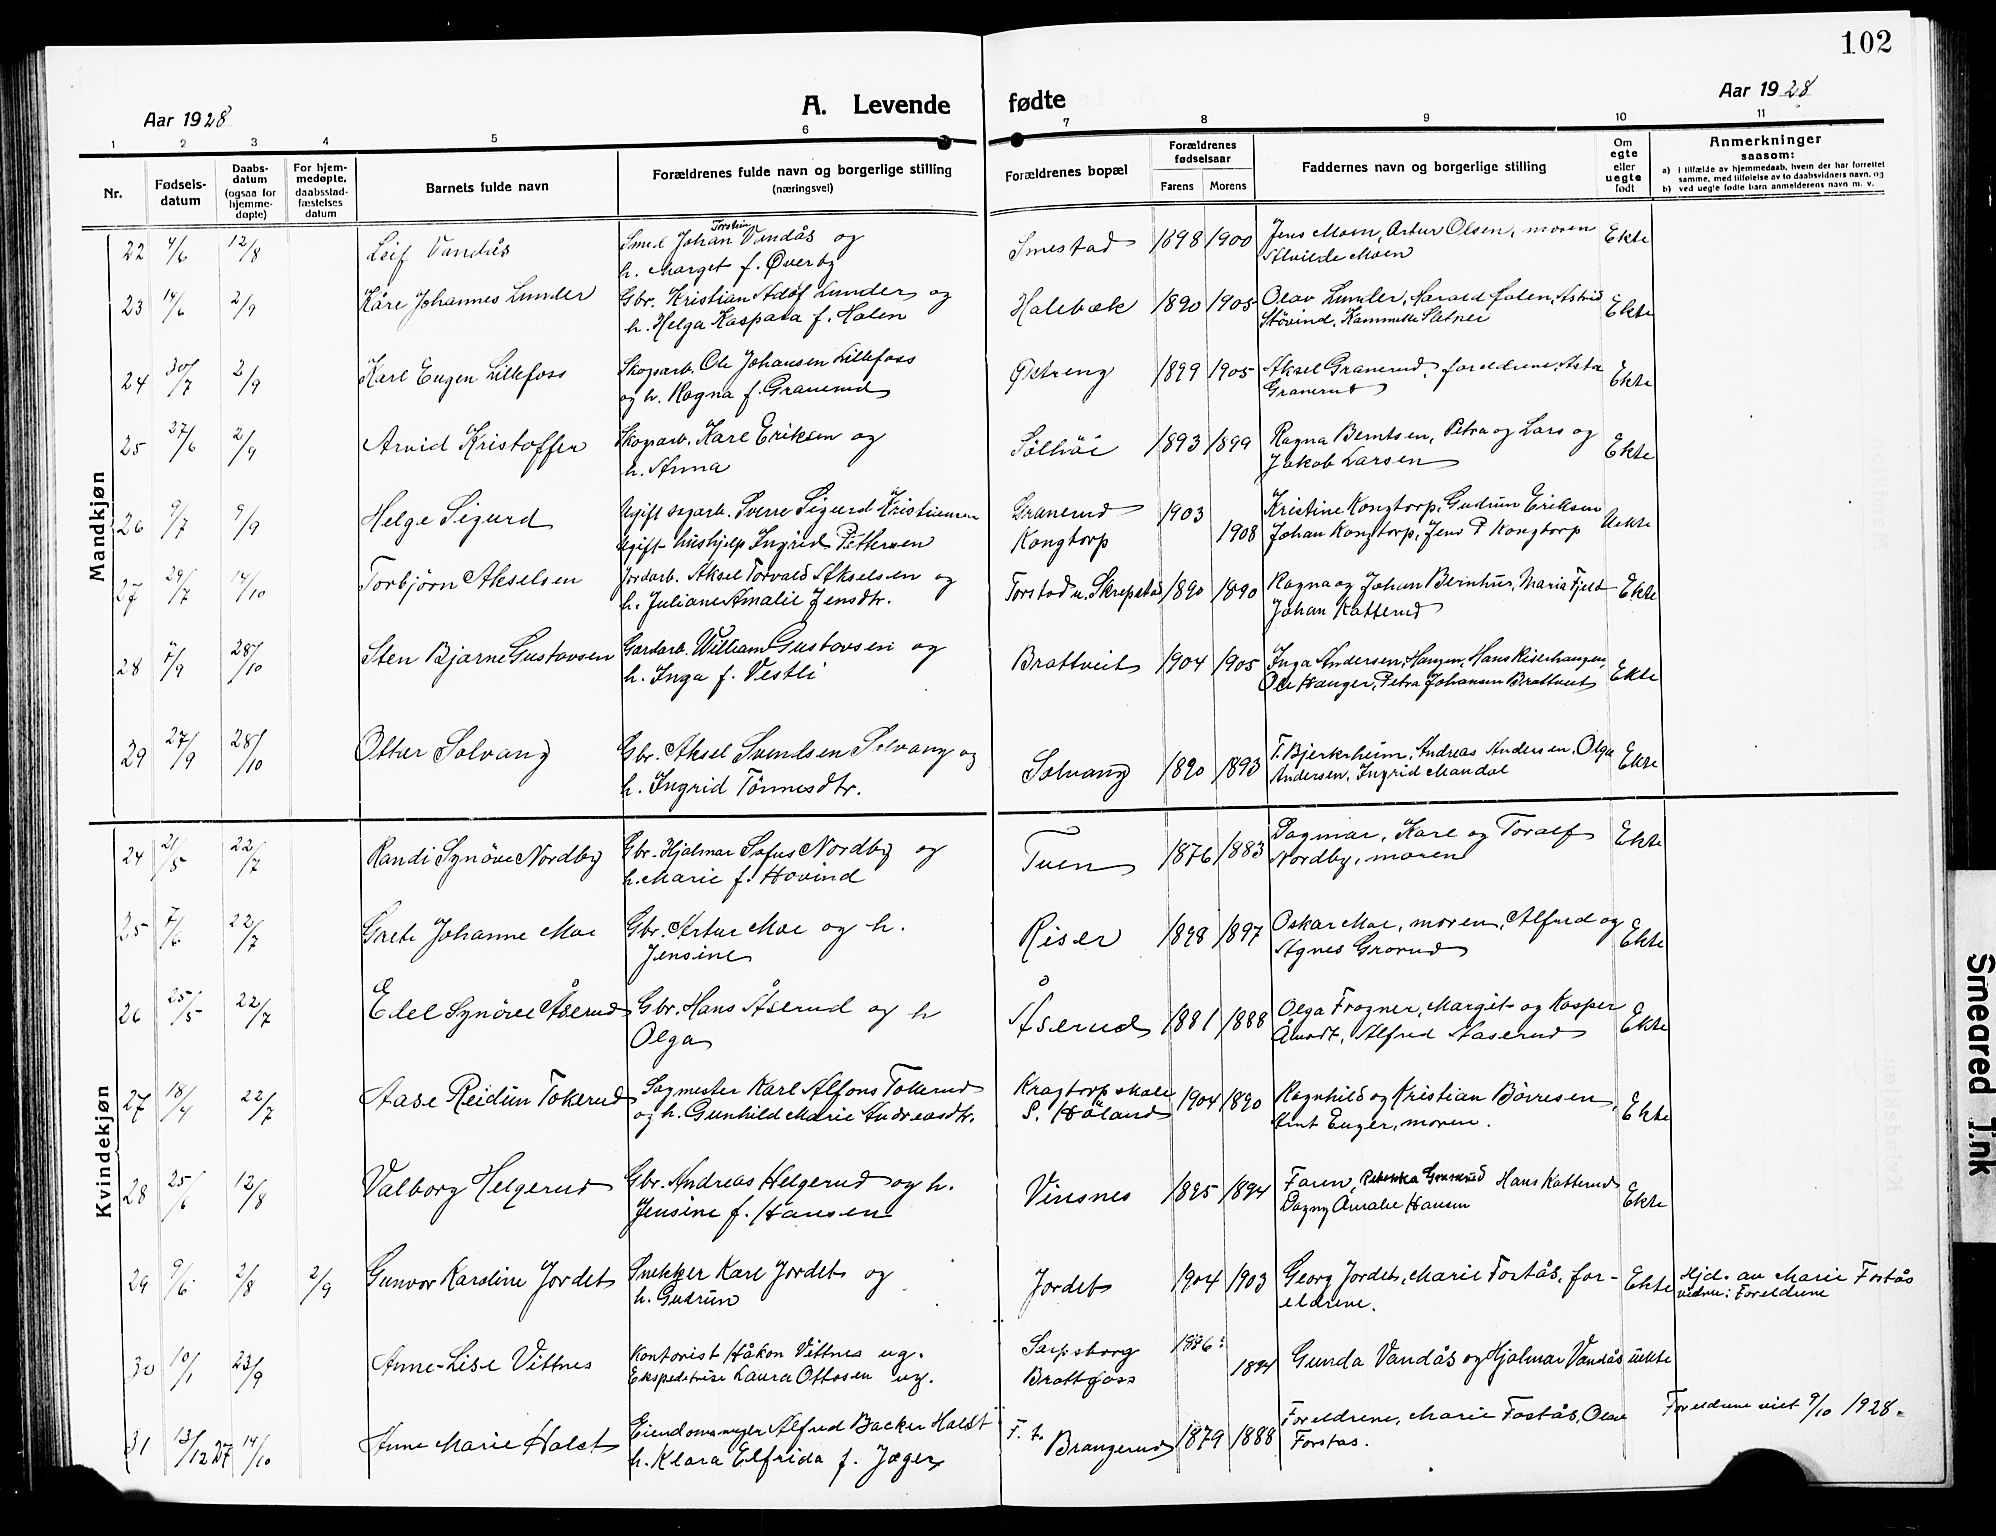 102
Aar 1928
A. Levende fødte
Aar 1928
1 2 3 4 5 6 7 8 9 10 11
Nr.
Fødsels-
datum
Daabs-
datum
(ogsaa for
hjemme-
døpte)
For hjem-
medøpte,
daabsstad-
fæstelses
datum
Barnets fulde navn
Forældrenes fulde navn og borgerlige stilling
(næringsvei)
Forældrenes bopæl
Forældrenes
fødselsaar
Farens Morens
Faddernes navn og borgerlige stilling
Om
egte
eller
uegte
født
Anmerkninger
saasom:
a) i tilfælde av hjemmedaab, hvem der har forrettet
samme, med tilføielse av to daabsvidners navn, og
b) ved uegte fødte barn anmelderens navn m. v.
Mandkjøn
22 4/6 12/8 Leif Vandås
Torstein
Smed Johan Vandås og
h. Marget f. Øverby
Smestad 1898 1900
Jens Moen, Artur Olsen, moren
Alvilde Moen
Ekte
23 14/6 2/9 Kåre Johannes Lunder
Gbr. Kristian Adolf Lunder og
h. Helga Kaspara f. Holen
Holebæk 1890 1905
Olav Lunder, Harald Holen, Astrid
Støvind,
Ekte
24 30/7 2/9 Karl Eugen Lillefoss
Skogarb. Ole Johansen Lillefoss
og h. Ragna f. Granerud
1899 1905
Aksel Granerud, foreldrene, Asta
Granerud
Ekte
25 27/6 2/9 Arvid Kristoffer
Skogarb. Karl Eriksen og
h. Anna
1893 1899
Ragna Berntsen, Petra og Lars og
Jakob Larsen
Ekte
26 9/7 9/9 Helge Sigurd
Ugift sagarb. Sverre Sigurd Kristiansen
Ugift hushjelp Ingrid Pettersen
Granerud
Kongtorp
1903
1908
Kristine Kongtorp, Gudrun Eriksen
Johan Kongtorp, Jens P Kongtorp
Uekte
27 29/7 14/10 Torbjørn Akselsen
Jordarb. Aksel Torvald Akselsen og
h. Juliane Amalie Jensdtr.
Torstad u. Skrepstad 1890 1890
Ragna og Johan Bernhus, Maria Fjeld
Johan Katterud
Ekte
28 7/9 28/10 Sten Bjarne Gustavsen
Gardarb. William Gustavsen og
h. Inga f. Vestli
Brattveit 1904 1905
Inga Andersen, Haugen, Hans Riserhaugen,
Ole Hauger, Petra Johansen Brattveit
Ekte
29 27/9 28/10 Ottar Solvang
Gbr. Aksel Svendsen Solvang og
h. Ingrid Tønnesdtr.
Solvang 1890 1893
T. Bjerkeheim, Andreas Andersen, Olga
Andersen, Ingrid Mandal
Ekte
Kvindekjøn
24 21/5 22/7 Randi Synøve Nordby
Gbr. Hjalmar Sofus Nordby og
h. Marie f. Hovind
Tuen 1876 1883
Dagmar, Karl og Toralf
Nordby, moren
Ekte
25 7/6 22/7 Grete Johanne Moe
Gbr. Artur Moe og h.
Jensine
Riser 1898 1897
Oskar Moe, moren, Alfred og
Agnes Grorud
Ekte
26 25/5 22/7 Edel Synøve Åserud
Gbr. Hans Åserud og h
Olga
Åserud 1881 1888
Olga Frogner, Margit og Kasper
Åmodt, Alfred Aaserud
Ekte
27 18/4 22/7 Aase Reidun Tokerud
Sagmester Karl Alfons Tokerud
og h. Gunhild Marie Andreasdtr.
Kragtorp skole
S. Höland
1904 1890
Ragnhild og Kristian Børresen,
Arnt Enger, moren.
Ekte
28 25/6 12/8 Valborg Helgerud
Gbr. Andreas Helgerud og h.
Jensine f. Hansen
Vinsnes 1895 1894
Faren, Rebekka Granerud Hans Katterud
Dagny Amalie Hansen
Ekte
29 9/6 2/8 2/9 Gunvor Karoline Jordet
Snekker Karl Jordet og
h. Gudrun
Jordet 1904 1903
Georg Jordet, Marie Fostås, for-
eldrene.
Ekte
Hjd. av Marie Fostås
vidner: Foreldrene
30 10/1 23/9 Anne-Lise Vittnes
Kontorist Håkon Vittnes ug.
Ekspeditrise Laura Ottosen ug.
Sarpsborg
Brattfoss
1896
1894
Gunda Vandås og Hjalmar Vandås
uekte
31 13/12 27 14/10 Anne Marie Holst
Eiendomsmegler Alfred Backer Holst
h. Klara Elfrida f. Jæger
F. t.
Brangerud
1879 1888
Foreldrene, Marie Fostås, Olav
Forstas.
Foreldrene viet 9/10 1928.
Smeared Ink